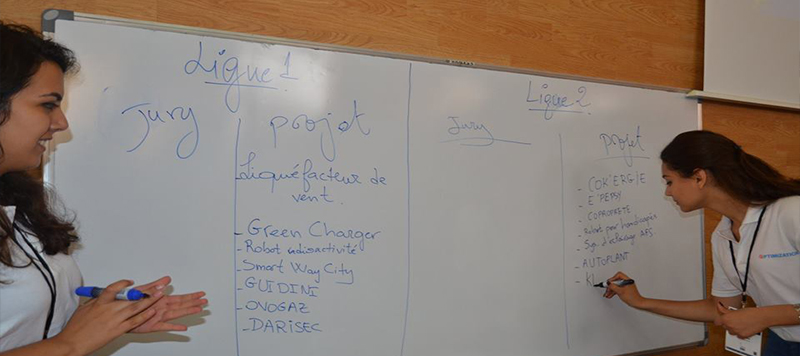 Ligue 1
Jury
projet
- Liquéfacteur de
vent.
- Green Charger
- Robot radioactivité
- Smart Way City
- GUIDINI
- OVOGAZ
- DARISEC
Ligue 2
Jury
projet
- COK'ERGIE
- E'PEPSY
- COPROPRETE
- Robot pour handicapés
- d'éclairage
- AUTOPLANT
- KL
OPTIMIZATION